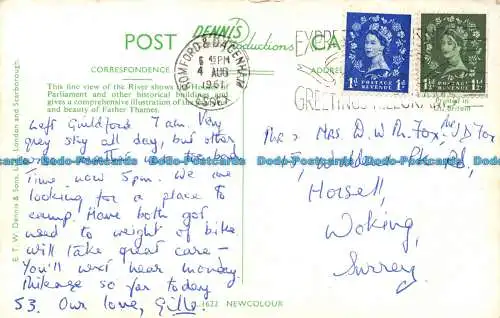 DENNIS
Productions
POST CA
CORRESPONDENCE
ADDRE
This fine view of the River shows the Houses of
Parliament and other historical buildings and
gives a comprehensive illustration of the
and beauty of Father Thames.
E. T. W. Dennis & Sons, Ltd., London and Scarborough.
ROMFORD & DAGENHAM
6 45PM
4 AUG
1961
ESSEX
EXPRE
GREETINGS TELEGRAM
POSTAGE REVENUE
1d 1d
POSTAGE REVENUE
1½d 1½d
Printed in
Left Guildford 7am. Very
grey sky all day, but other
wise
Time now 5pm. We are
looking for a place to
camp. Have both got
used to weight of bike
will take great care –
You'll next hear monday.
Mileage so far today
53. Our love, Gille.
Mr & Mrs D. W. M. Fox,
Rd,
Horsell,
Woking,
Surrey.
1622 NEWCOLOUR
Bdo-Postcards Bdo-Postcards Bdo-Postcards Bdo-Postcards